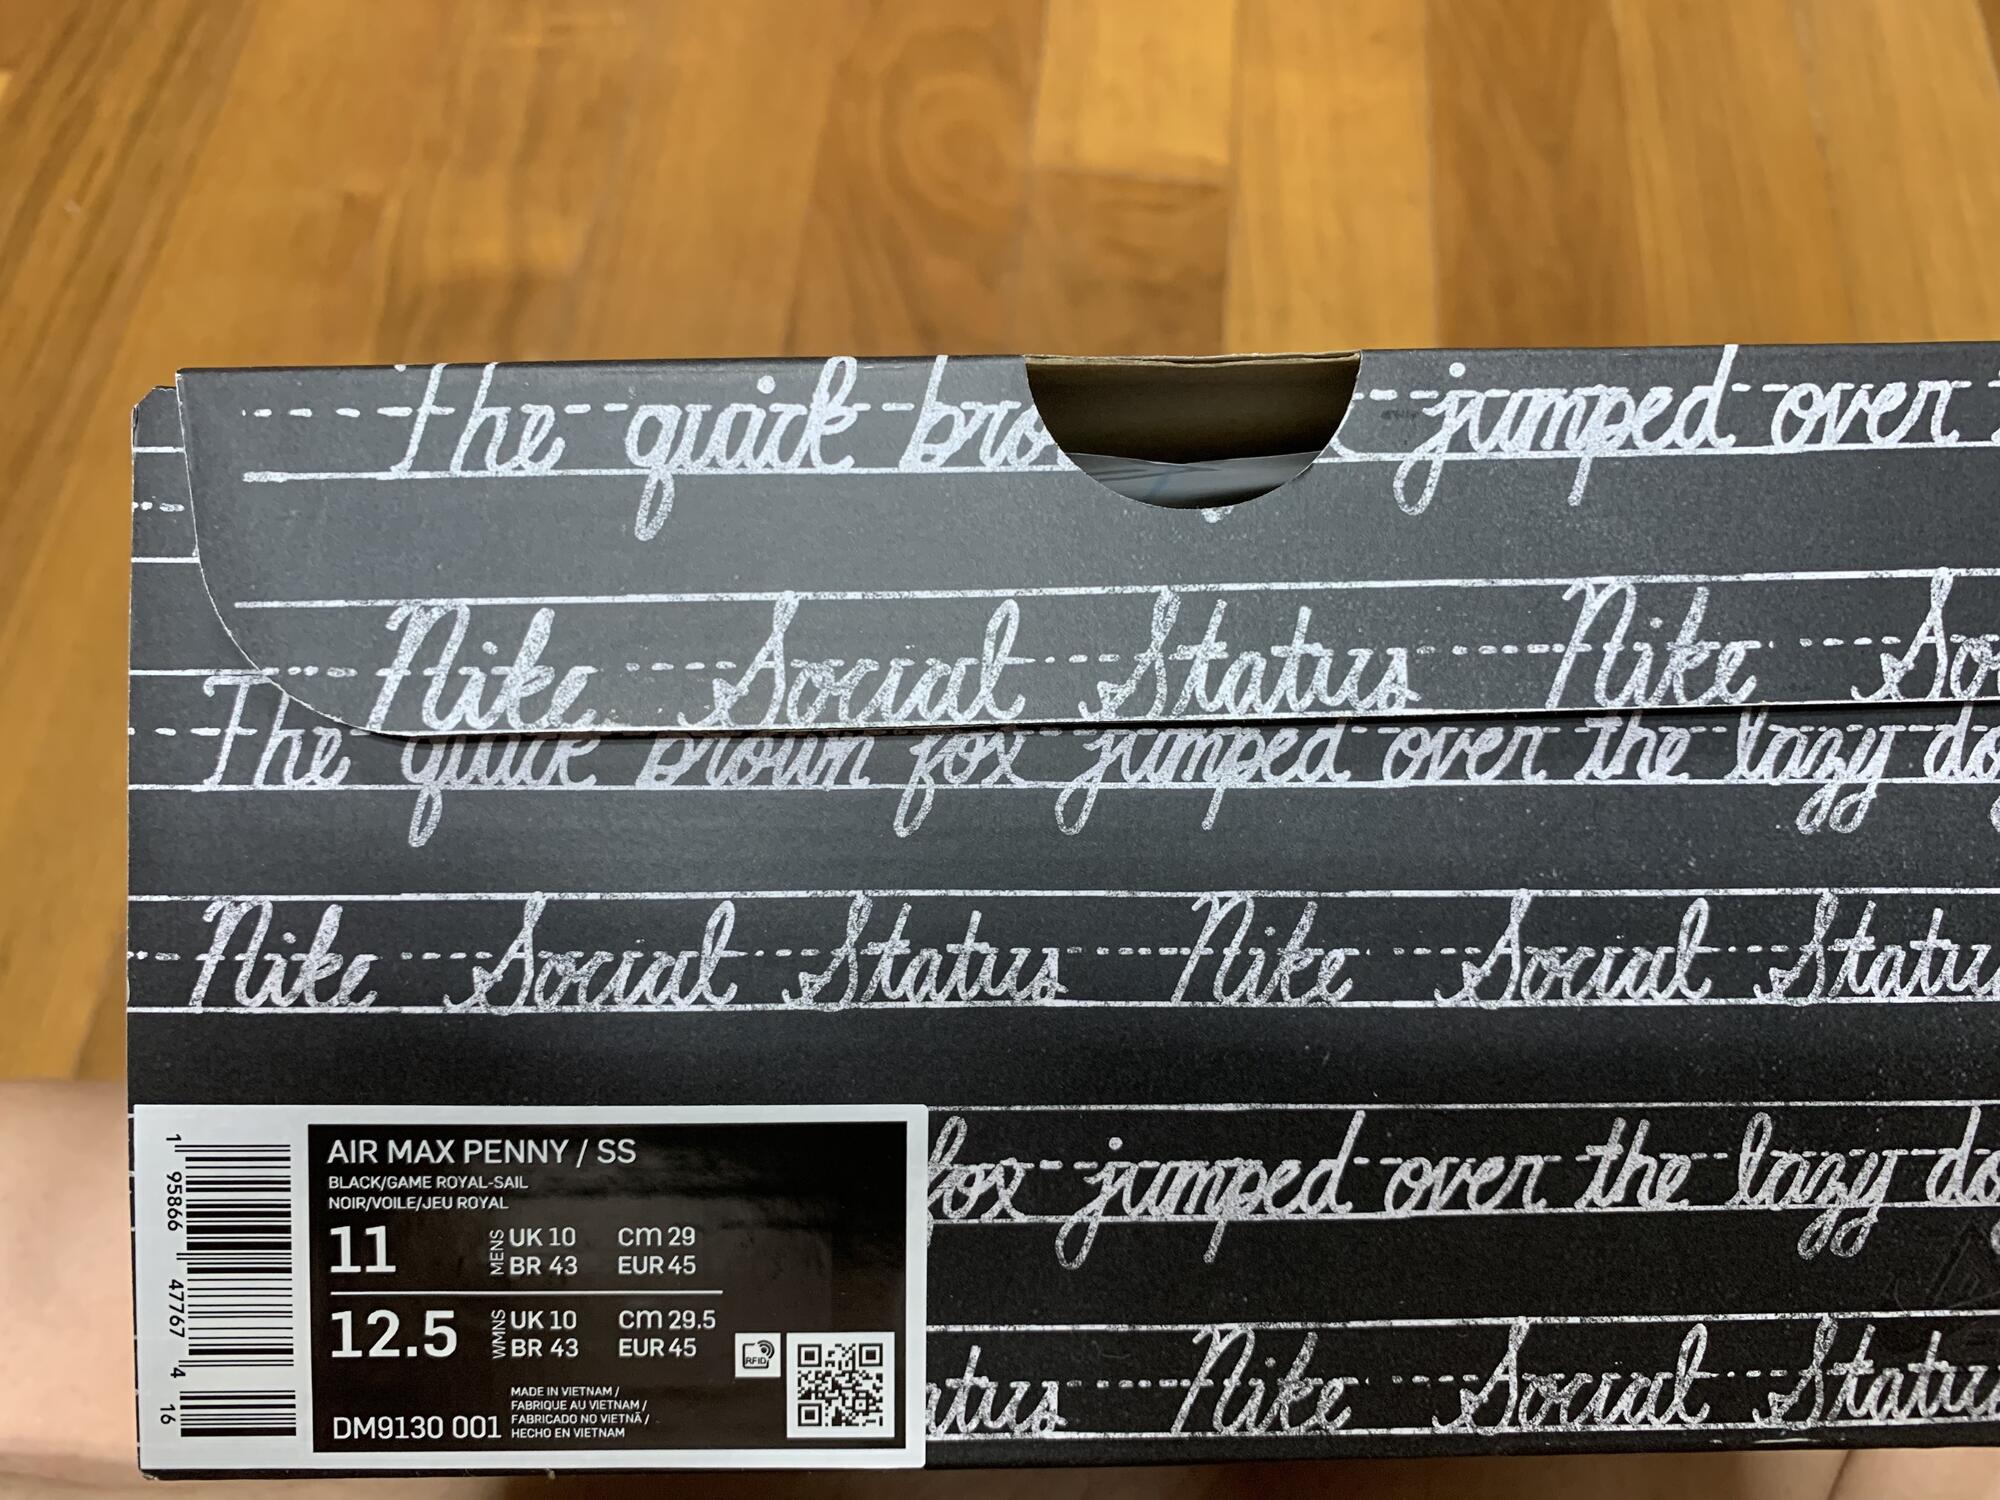 The quick bro jumped over
Nike Social Status Nike So
The quick brown fox jumped over the lazy do
Nike Social Status Nike Social Statu
fox jumped over the lazy do
atus Nike Social Statu
1 95866 47767 4 16
AIR MAX PENNY / SS
BLACK/GAME ROYAL-SAIL
NOIR/VOILE/JEU ROYAL
11 MENS UK 10 CM 29
BR 43 EUR 45
12.5 WMNS UK 10 CM 29.5
BR 43 EUR 45
RFID
DM9130 001
MADE IN VIETNAM /
FABRIQUE AU VIETNAM /
FABRICADO NO VIETNÃ /
HECHO EN VIETNAM